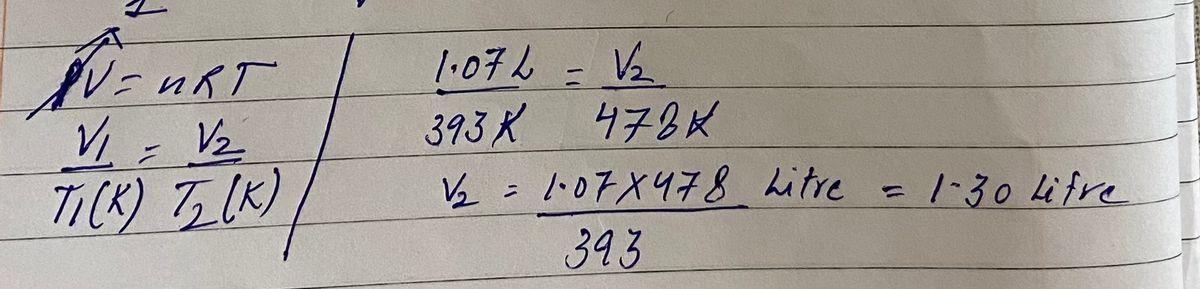 PV = nRT
V1/T1(K) = V2/T2(K)
1.07 L/393 K = V2/478 K
V2 = 1.07 X 478/393 Litre = 1.30 Litre